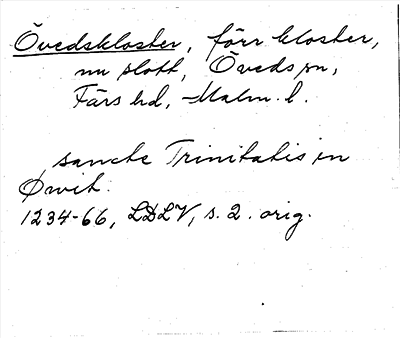 Övedskloster, förr kloster,
nu slott, Öveds sn,
Färs hd, Malm. l.
sancte Trinitatis in
Øwith.
1234-66, LDLV, s. 2. orig.